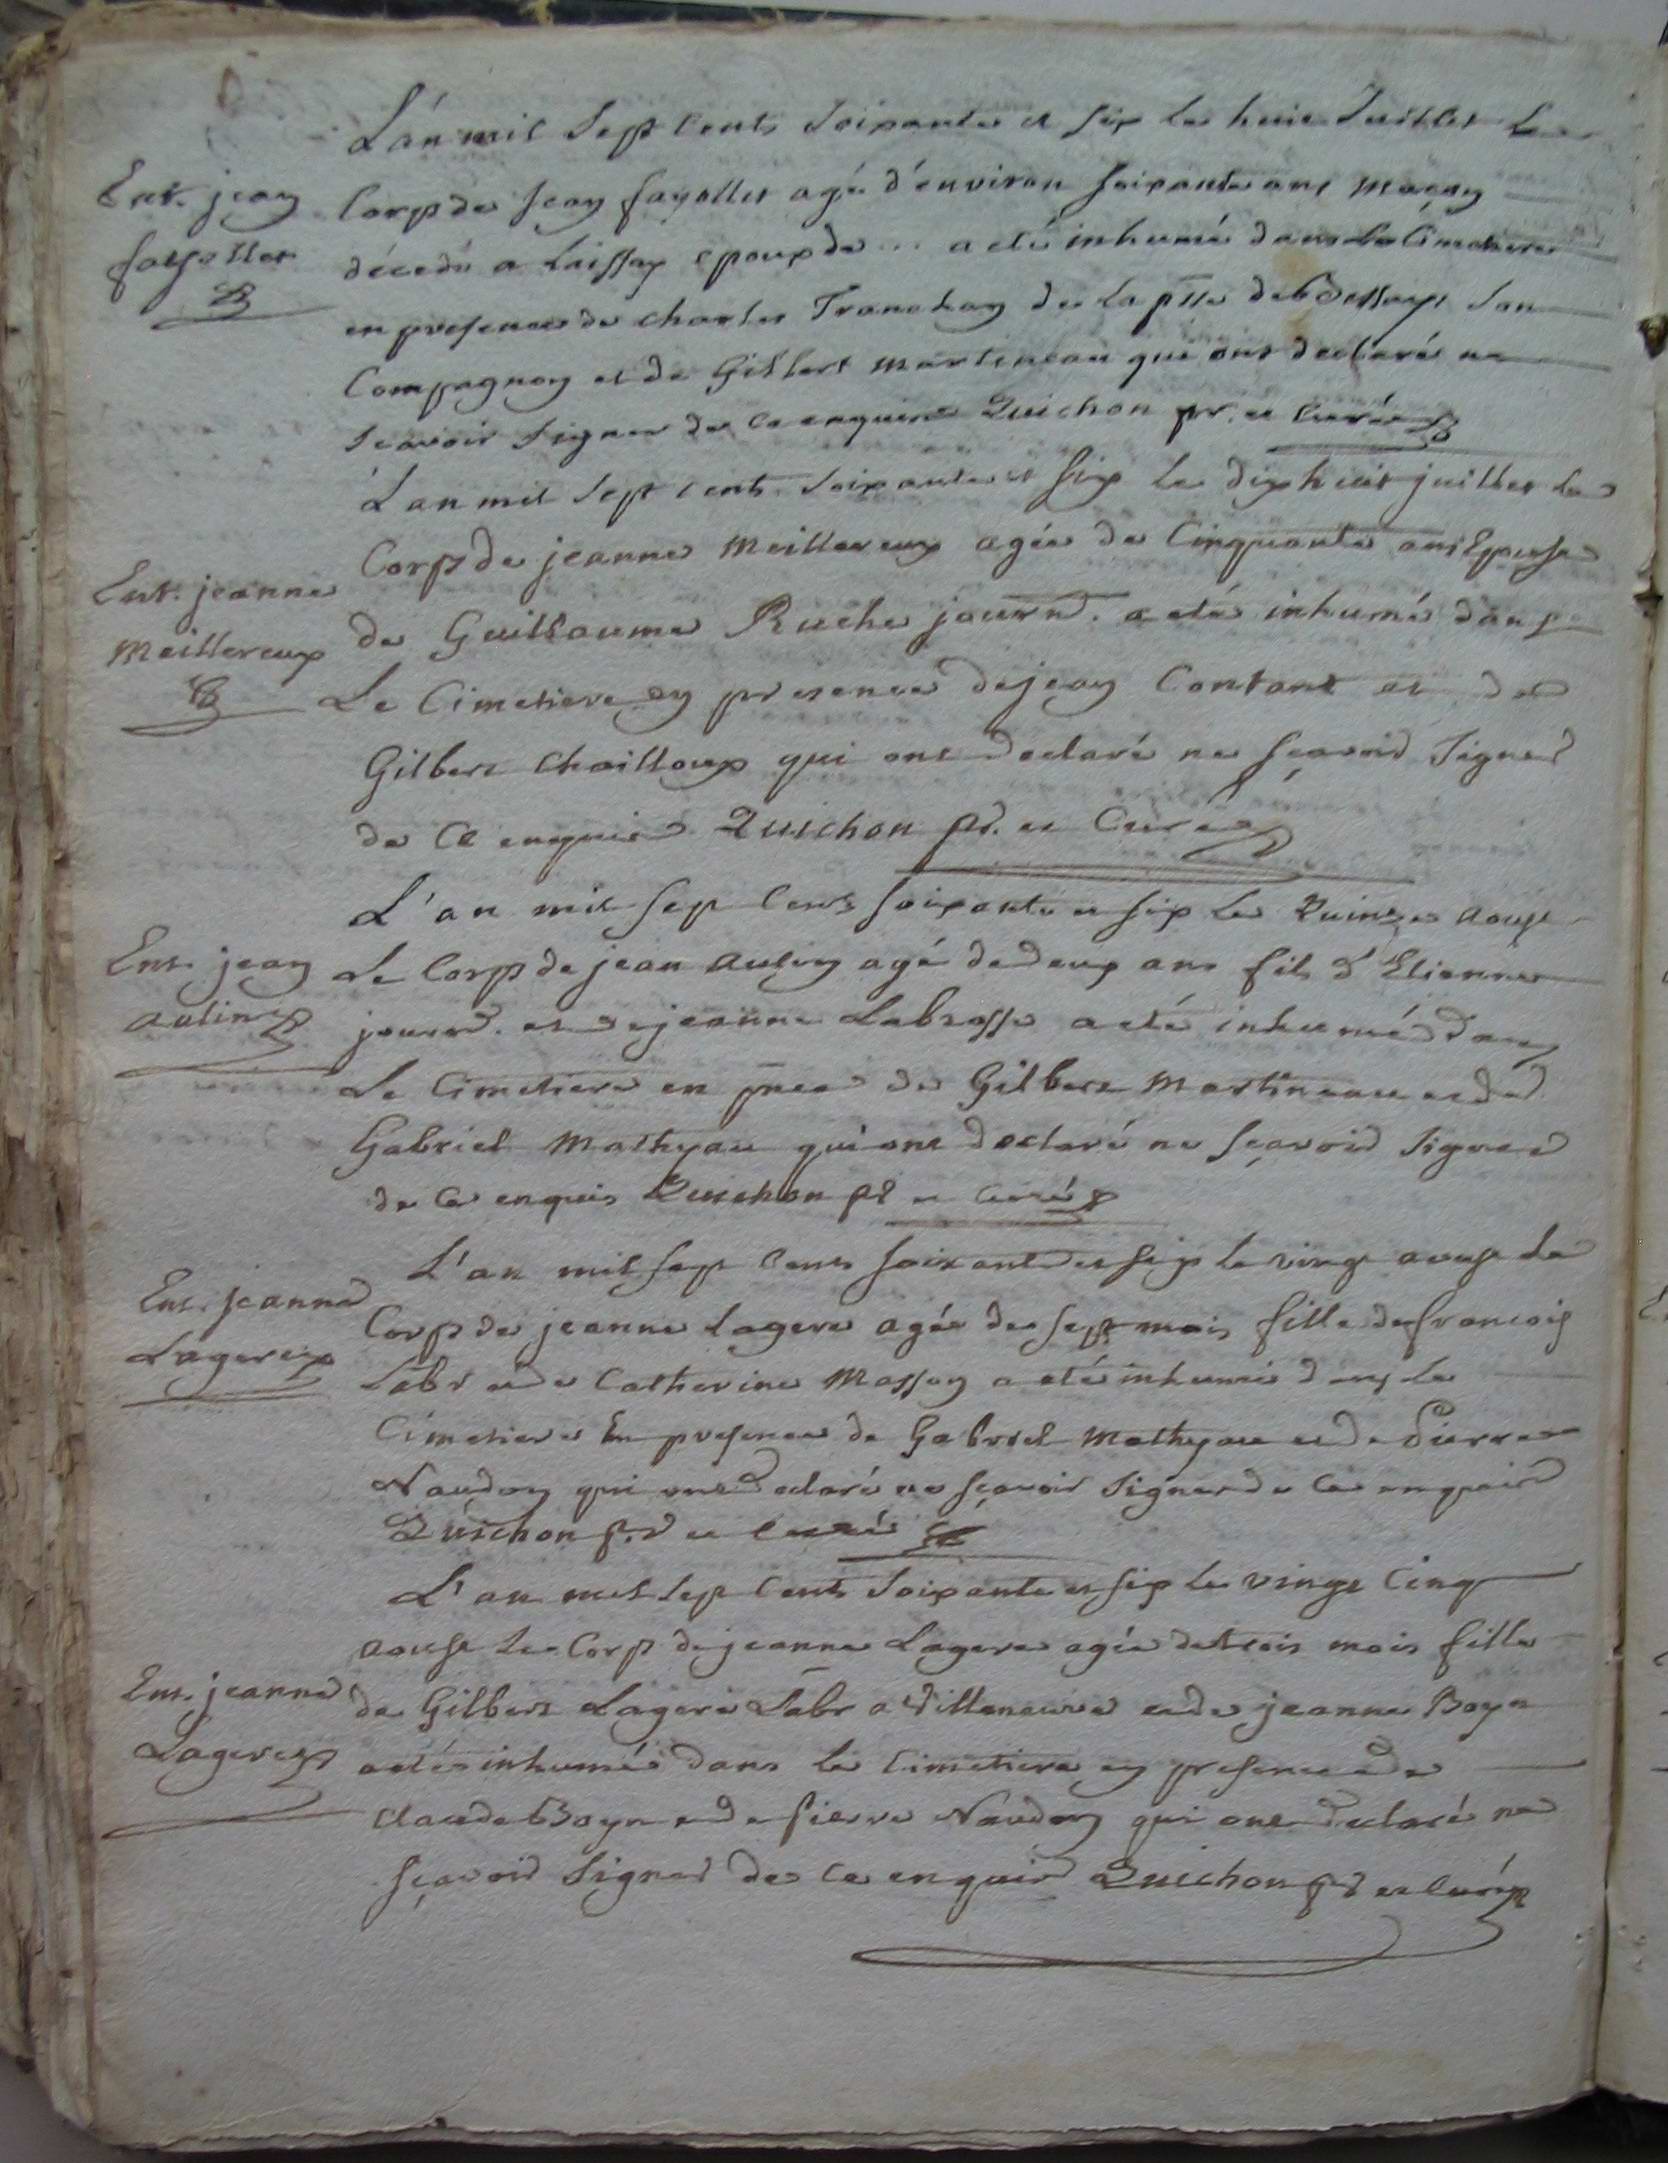 L'an mil sept cents soixante et six le huit Juillet Le
Ent. jean
fayollet
Corps de Jean fayollet agé d'environ soixante ans maçon
décédé a Laissay epoux de ... a eté inhumé dans le Cimetiere
en presence de charles Tranchay de la psse de son
Compagnon et de Gilbert martineau qui ont declaré ne
scavoir signer de ce enquis Quichon pr. et curé
L'an mil sept cents soixante et six le dix huit juillet le
Corps de jeanne Meillereux agée de Cinquante ans Epouse
Ent. jeanne
Meillereux
de Guillaume Ruche journ. a eté inhumé dans
Le Cimetiere en presence de jean Contant et de
Gilbert Chailloux qui ont declaré ne sçavoir signer
de ce enquis Quichon pr. et Curé
L'an mil sept cents soixante et six le Quinze aoust
Ent. jean
aulin
Le Corps de jean aulin agé de deux ans fils d'Etienne
journ. et de jeanne Labrosse a eté inhumé dans
Le Cimetiere en pnce de Gilbert Martineau et de
Gabriel Mathyau qui ont declaré ne sçavoir signer
de ce enquis Quichon pr et curé
L'an mil sept cents soixante et six le vingt aoust Le
Ent. jeanne
Lagere
Corps de jeanne Lagere agée de sept mois fille de francois
Labr et de Catherine Masson a eté inhumé dans le
Cimetiere En presence de Gabriel Mathyau et de Pierre
Naudon qui ont declaré ne sçavoir signer de ce enquis
Quichon pr et curé
L'an mil sept cents soixante et six le vingt Cinq
aoust Le Corps de jeanne Lagere agée de trois mois fille
Ent. jeanne
Lagere
de Gilbert Lagere Labr a Villeneuve et de jeanne Boyn
a eté inhumé dans le Cimetiere en presence de
Claude Boyn et de Pierre Naudon qui ont declaré ne
sçavoir signer de ce enquis Quichon pr et curé